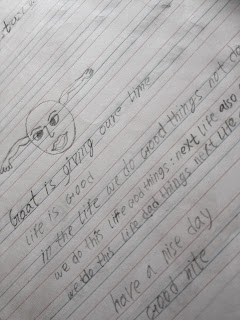 Goat is giving oure time
Life is Good
In the Life we do Good things not do
we do this Life Good things. next Life also
we do this Life bad things next Life
have a nise day
Good nite